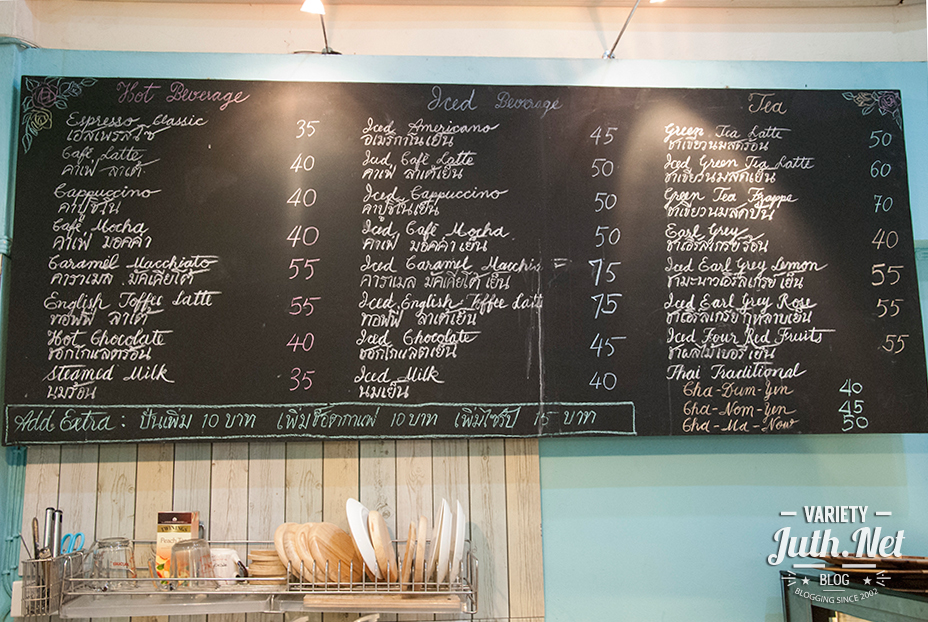 Hot Beverage
Espresso Classic 35
เอสเพรสโซ่
Café Latte 40
คาเฟ่ ลาเต้
Cappuccino 40
คาปูชิโน
Café Mocha 40
คาเฟ่ มอคค่า
Caramel Macchiato 55
คาราเมล มัคเคียโต้
English Toffee Latte 55
ทอฟฟี่ ลาเต้
Hot Chocolate 40
ชอกโกแลตร้อน
Steamed Milk 35
นมร้อน
Iced Beverage
Iced Americano 45
อเมริกาโนเย็น
Iced Café Latte 50
คาเฟ่ ลาเต้เย็น
Iced Cappuccino 50
คาปูชิโนเย็น
Iced Café Mocha 50
คาเฟ่ มอคค่าเย็น
Iced Caramel 75
คาราเมล มัคเคียโต้ เย็น
Iced English Toffee Latte 75
ทอฟฟี่ ลาเต้เย็น
Iced Chocolate 45
ชอกโกแลตเย็น
Iced Milk 40
นมเย็น
Tea
Green Tea Latte 50
ชาเขียวนมสดร้อน
Iced Green Tea Latte 60
ชาเขียวนมสดเย็น
Green Tea Frappe 70
ชาเขียวนมสดปั่น
Earl Grey 40
ชาเอิร์ลเกรย์ร้อน
Iced Earl Grey Lemon 55
ชามะนาวเอิร์ลเกรย์เย็น
Iced Earl Grey Rose 55
ชาเอิร์ลเกรย์ กุหลาบเย็น
Iced Four Red Fruits 55
ชาผลไม้เบอรี่เย็น
Thai Traditional
Cha-Dum-Yen 40
Cha-Nom-Yen 45
Cha-Ma-Now 50
Add Extra : ปั่นเพิ่ม 10 บาท เพิ่มช็อตกาแฟ 10 บาท เพิ่มไซรัป 15 บาท
TWININGS
VARIETY
Juth.Net
BLOG
BLOGGING SINCE 2002